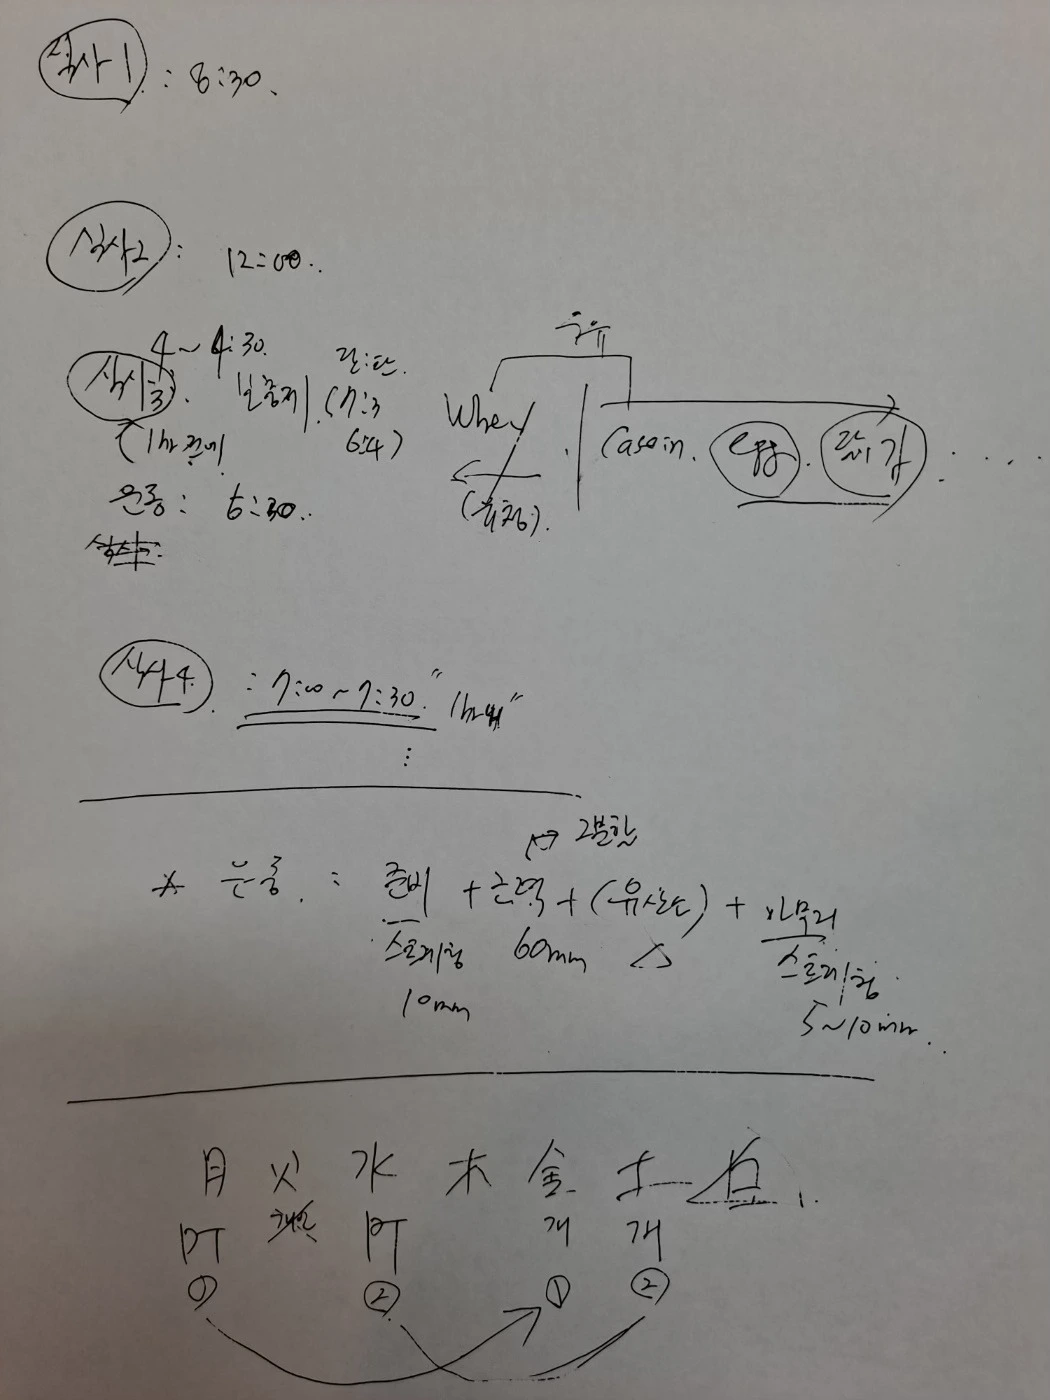 식사1 : 8:30.
식사2 : 12:00..
우유
4~4:30. 탄:단.
식사3. 보충제 (7:3
6:4)
Whey Casein. egg.
(1hr 전에
운동 : 5:30..
식사 4. : 7:00~7:30. "1hr
2분할
* 운동. : 준비 + 근력 + (유산소) + 마무리
스트레칭 60min △ 스트레칭
10min 5~10min.
月 火 水 木 金 土 日.
PT 개인 PT 개 개
① ② ① ②